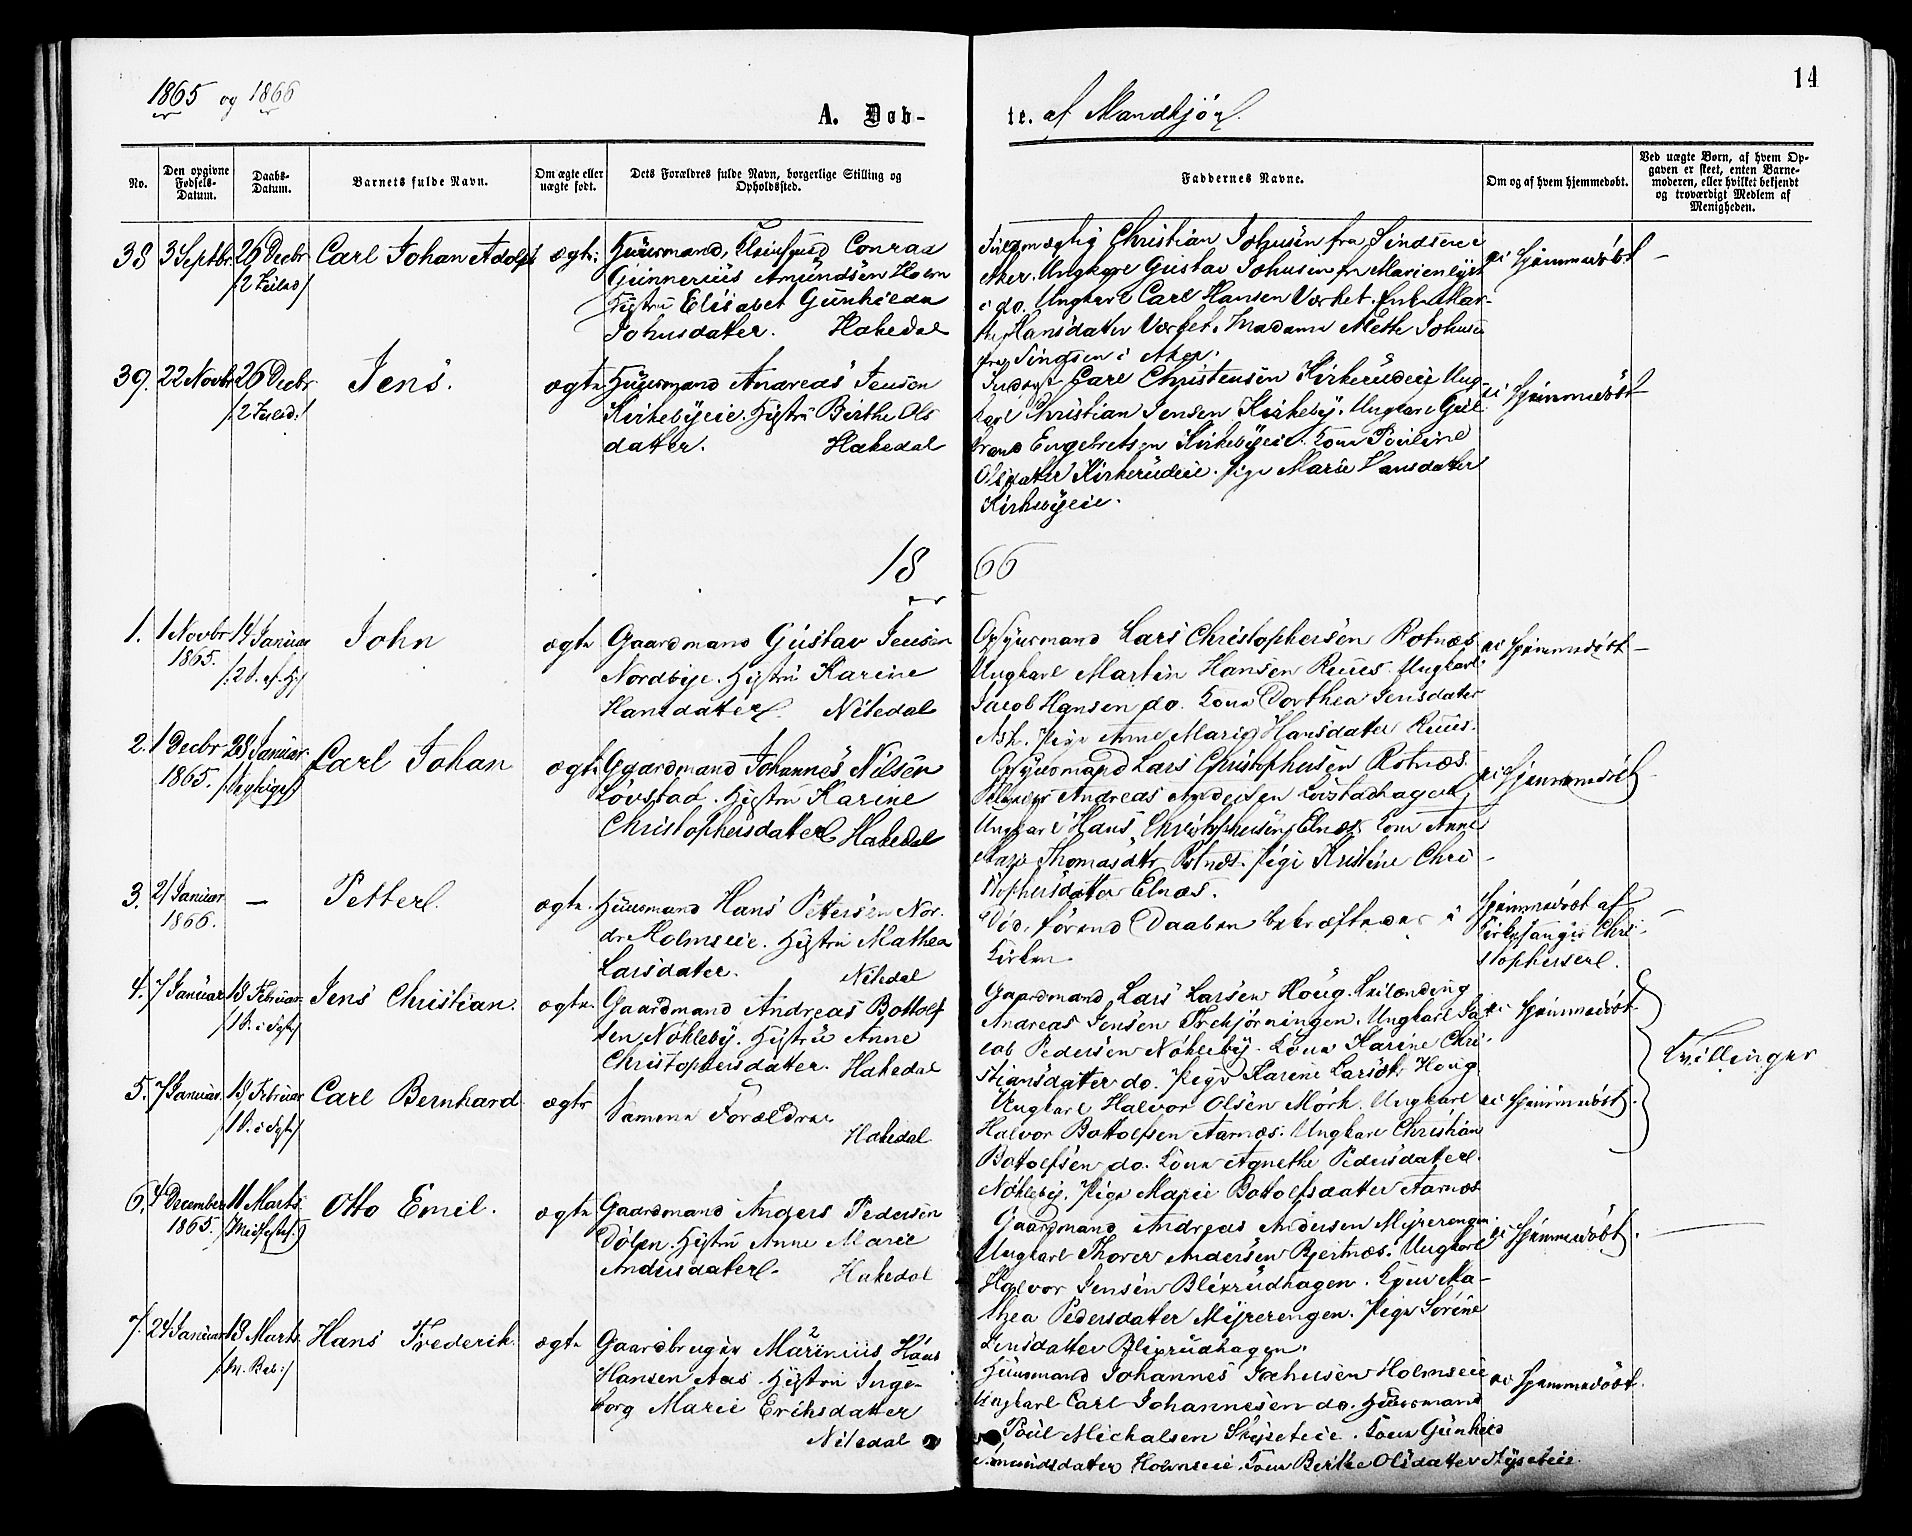 1865 og 1866
14
A. Døb-
te. af Mandkjøn.
No.
Den opgivne Fødsels-Datum.
Daabs-Datum.
Barnets fulde Navn.
Om ægte eller uægte født.
Dets Forældres fulde Navn, borgerlige Stilling og Opholdssted.
Faddernes Navne.
Om og af hvem hjemmedøbt.
Ved uægte Børn, af hvem Opgaven er skeet, enten Barnemoderen, eller hvilket bekjendt og troværdigt Medlem af Menigheden.
38 3 Septbr 26 Decbr Carl Johan Adolf ægte. Huusmand, Conrad
/2 Juled/ Gunnerius Amundsen Holm
Hustru Elisabet Gunhilda
Johnsdatter. Hakedal
Christian Johnsen fra Sindsen i
Aker. Ungkarl Gustav Johnsen fra Marienlyst
i do. Ungkarl Carl Hansen Værket. Enke Mar-
the Hansdatter Værket. Madame Mette Johnsen
fra Sindsen i Aker.
ei hjemmedøbt –
39. 22 Novbr 26 Decbr Jens. ægte Huusmand Andreas Jensen
/2 Juled./ Kirkebyeie. Hustru Birthe Ols
datter. Hakedal
Inderst Carl Christensen Kirkerudeie Ung-
karl Christian Jensen Kirkeby. Ungkarl Gul
brand Engebretsen Kirkebyeie. Kone Pauline
Olsdatter Kirkerudeie. Pige Marie Hansdatter
Kirkebyeie.
ei hjemmedøbt
18 66
1. 1 Novbr 14 Januar John ægte Gaardmand Gustav Jensen
1865. Nordbye. Hustru Karine
Hansdatter. Nitedal
Opsynsmand Lars Christophersen Rotnæs
Ungkarl Martin Hansen Ruus. Ungkarl
Jacob Hansen do. Kone Dorthea Jensdater
Ask. Pige Anne Marie Hansdatter Ruus.
ei hjemmedøbt –
2. 1 Decbr 28 Januar Carl Johan ægte Gaardmand Johannes Nilsen
1865. Løvstad. Hustru Karine
Christophersdatter Hakedal
Opsynsmand Lars Christophersen Rotnæs.
Andreas Andersen Løvstadhagen
Ungkarl Hans Christophersen Elnæs. Kone Anne
Thomasdtr Rotnæs. Pige Kristine Chri-
stophersdatter Elnæs.
ei hjemmedøbt
3. 21 Januar – Petter. ægte. Huusmand Hans Pettersen Nor-
1866. dre Holmseie. Hustru Mathea
Larsdatter. Nitedal
Død, førend Daaben bekræftedes i
Kirken
Hjemmedøbt af
Kirkesanger Chri-
stophersen.
4. 7 Januar 18 Februar Jens Christian. ægte. Gaardmand Andreas Bottolf
/1 S. i Faste/ sen Nøkleby. Hustru Anne
Christophersdatter. Hakedal
Gaardmand Lars Larsen Houg. Leilænding
Andreas Jensen Trekjørningen. Ungkarl Ja-
cob Pedersen Nøkleby. Kone Karine Chri-
stiansdatter do. Pige Karene Larsdtr Houg.
ei hjemmedøbt
Tvillinger
5. 7 Januar. 18 Februar Carl Bernhard ægte Samme Forældre
/1 S. i Faste/ Hakedal
Ungkarl Halvor Olsen Mørk. Ungkarl
Halvor Bottolfsen Aarnæs. Ungkarl Christian
Bottolfsen do. Kone Agnethe Pedersdatter
Nøkleby. Pige Marie Bottolfsdatter Aarnæs
ei hjemmedøbt.
6. 4 December 11 Marts Otto Emil. ægte Gaardmand Anders Pedersen
1865. Dølen. Hustru Anne Marie
Andersdatter. Hakedal
Gaardmand Andreas Andersen Myrerengen.
Ungkarl Thorer Andersen Bjertnæs. Ungkarl
Halvor Jensen Blixrudhagen. Kone Ma-
thea Pedersdatter Myrerengen. Pige Sørine
Jensdatter Blixrudhagen.
ei hjemmedøbt.
7. 24 Januar 18 Marts Hans Frederik. ægte Gaardbruger Marinius Hans
Hansen Aas. Hustru Inge-
borg Marie Eriksdatter
Nitedal
Huusmand Johannes Jachusen Holmseie
Ungkarl Carl Johannesen do. Huusmand
Poul Michalsen Skyseteie. Kone Gunhild
Amundsdatter Holmseie. Kone Berthe Olsdatter Skyseteie.
ei hjemmedøbt.